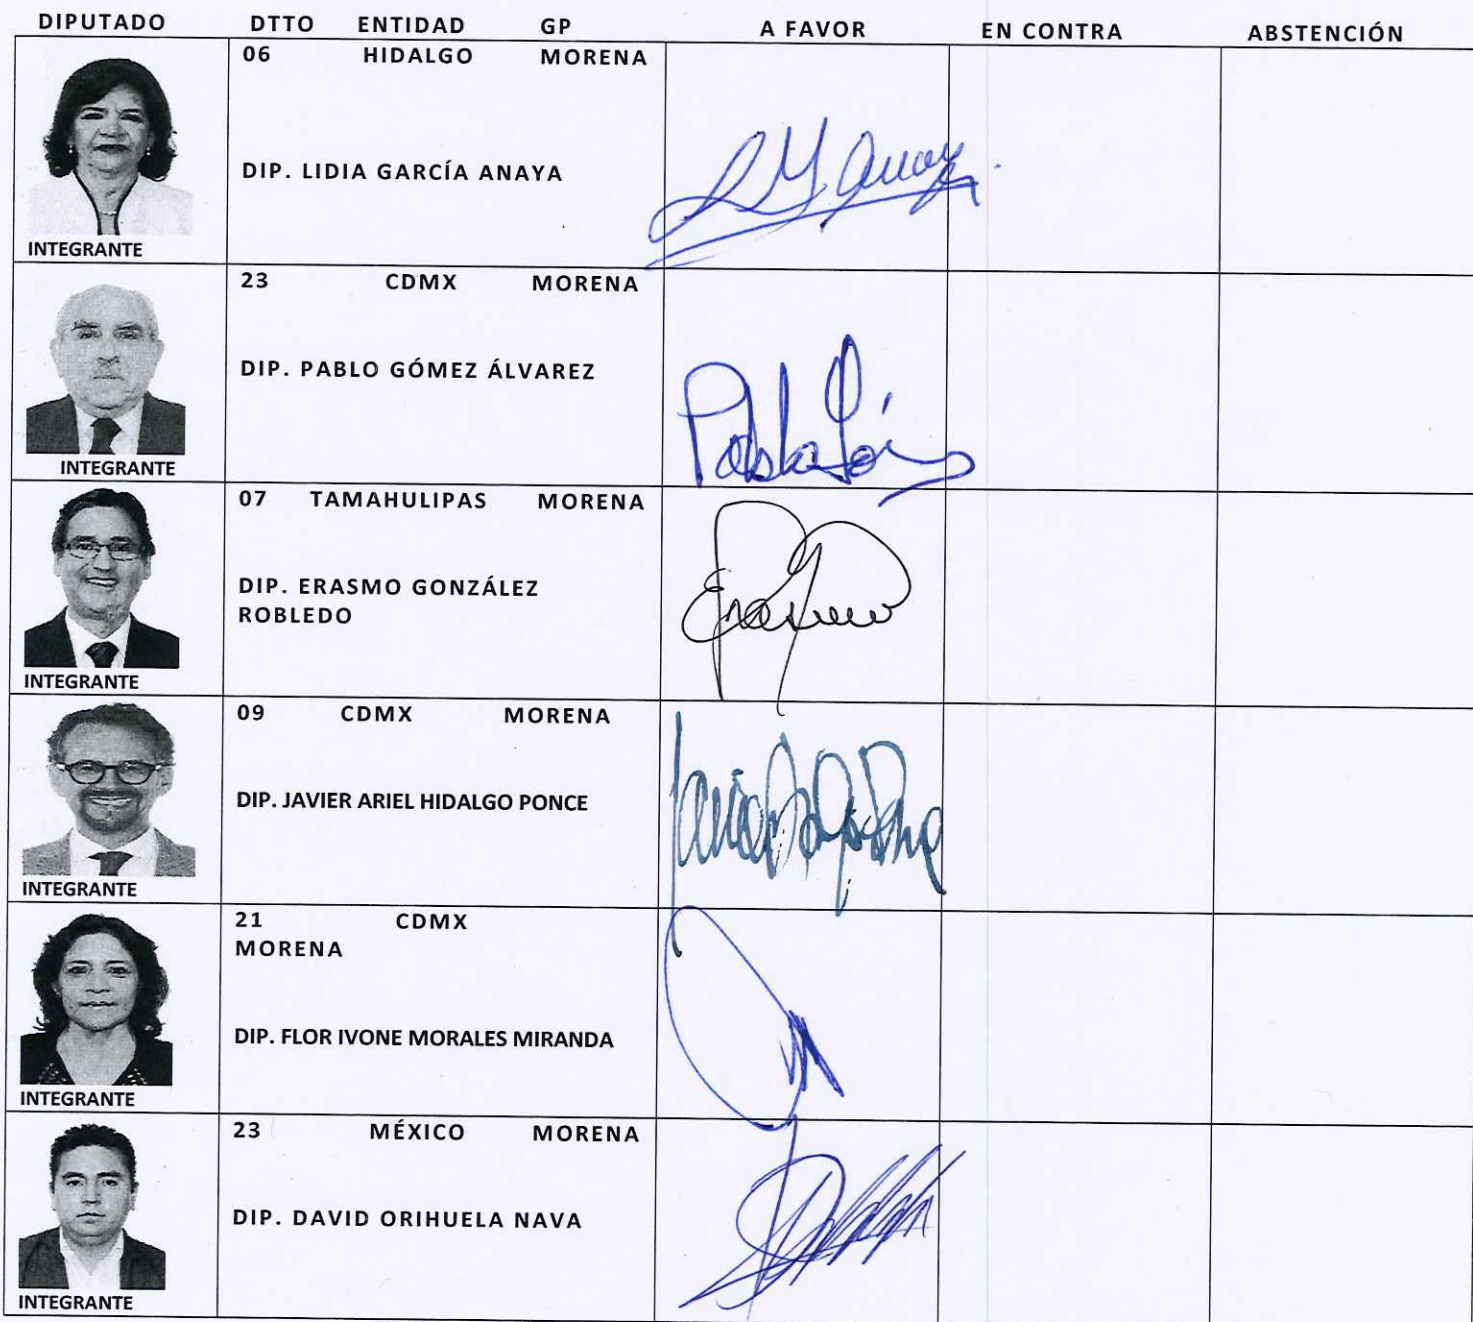 DIPUTADO DTTO ENTIDAD GP A FAVOR EN CONTRA ABSTENCIÓN
06 HIDALGO MORENA
DIP. LIDIA GARCÍA ANAYA
INTEGRANTE
23 CDMX MORENA
DIP. PABLO GÓMEZ ÁLVAREZ
INTEGRANTE
07 TAMAHULIPAS MORENA
DIP. ERASMO GONZÁLEZ
ROBLEDO
INTEGRANTE
09 CDMX MORENA
DIP. JAVIER ARIEL HIDALGO PONCE
INTEGRANTE
21 CDMX
MORENA
DIP. FLOR IVONE MORALES MIRANDA
INTEGRANTE
23 MÉXICO MORENA
DIP. DAVID ORIHUELA NAVA
INTEGRANTE